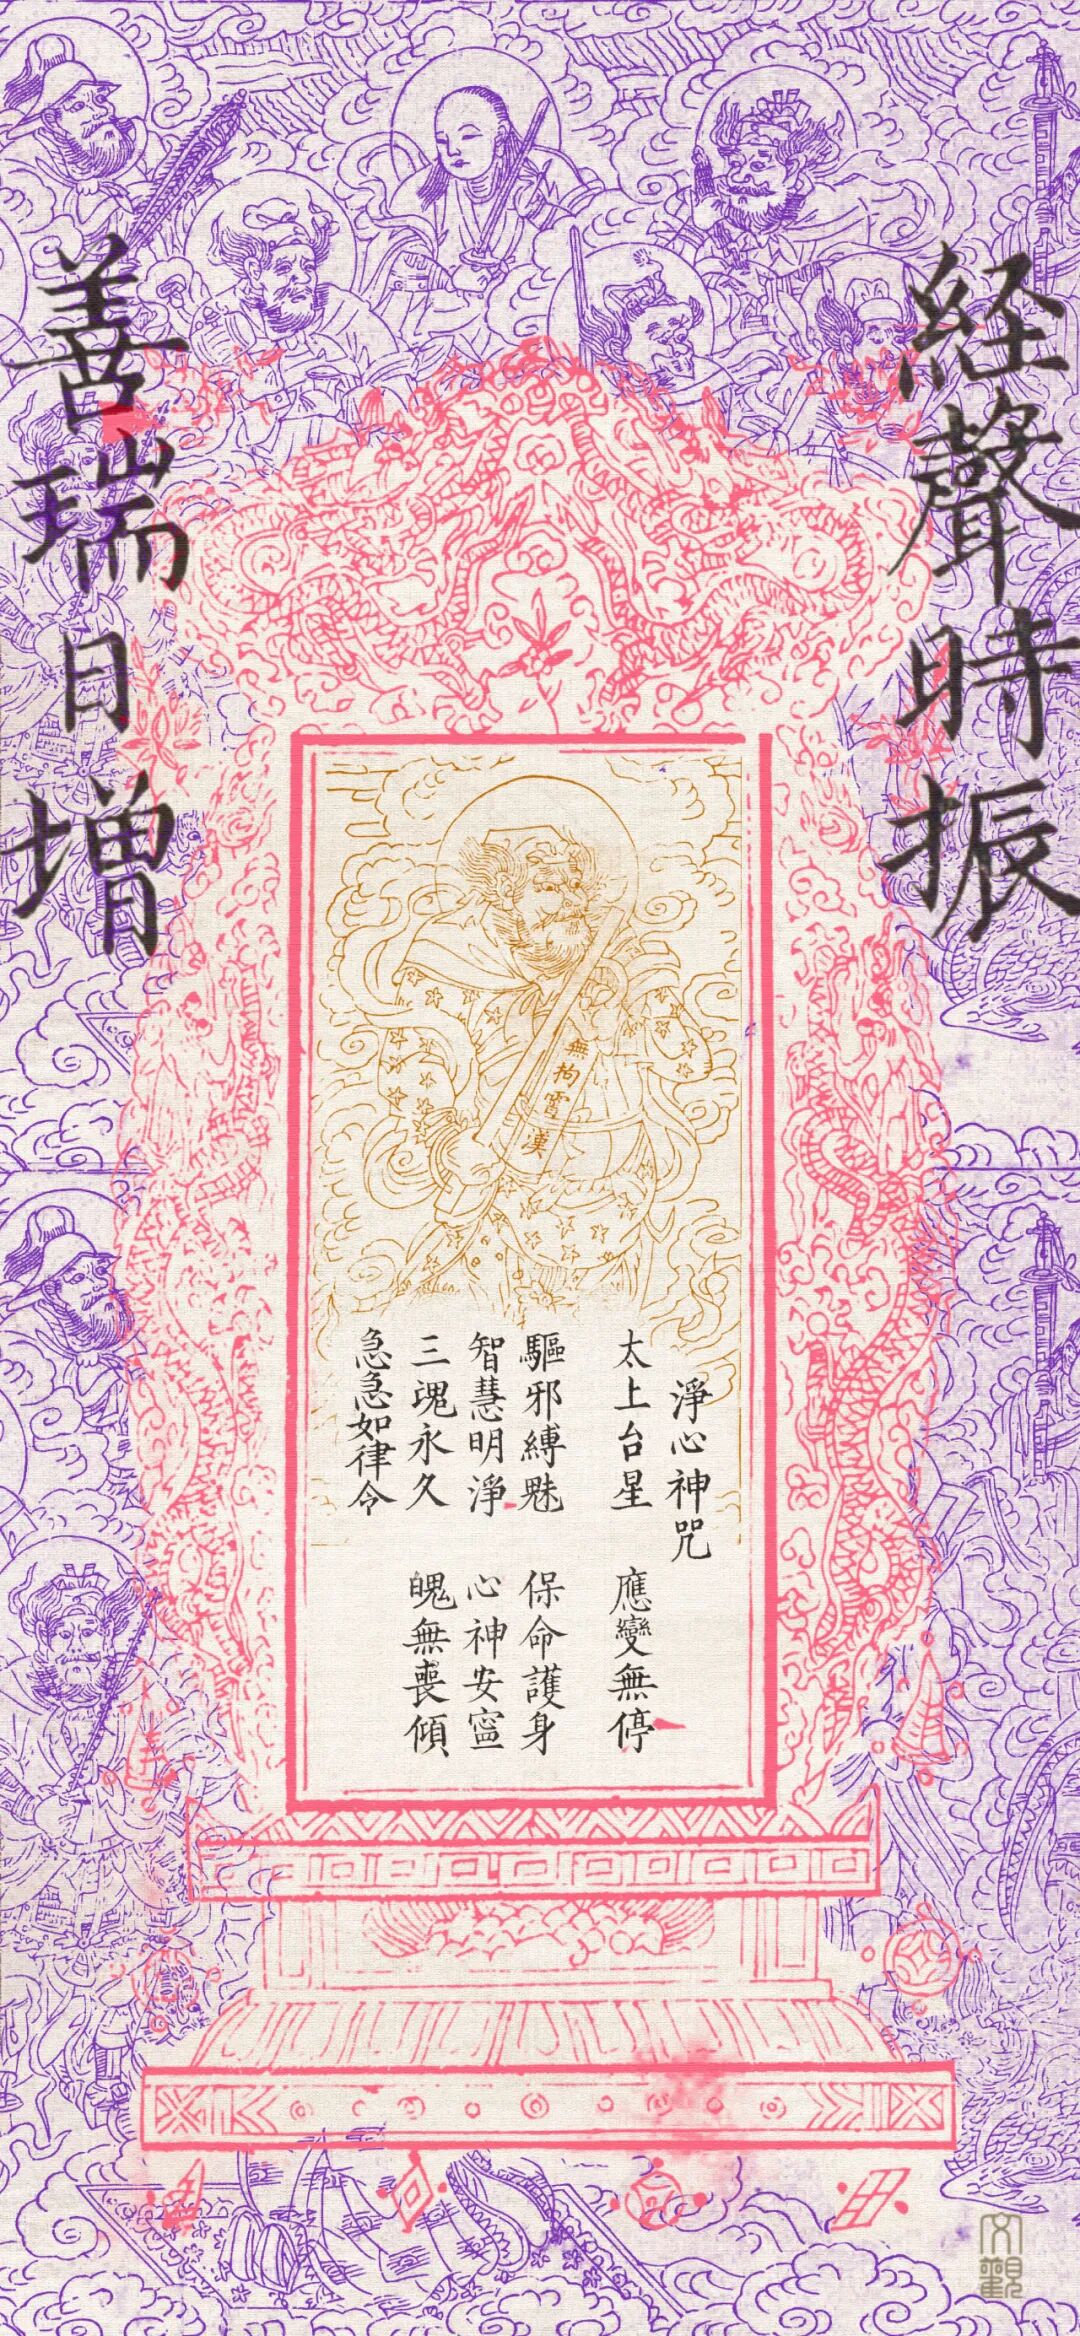 經聲時振
善瑞日增
無拘霄漢
淨心神咒
太上台星 應變無停
驅邪縛魅 保命護身
智慧明淨 心神安寍
三魂永久 魄無喪傾
急急如律令
文觀